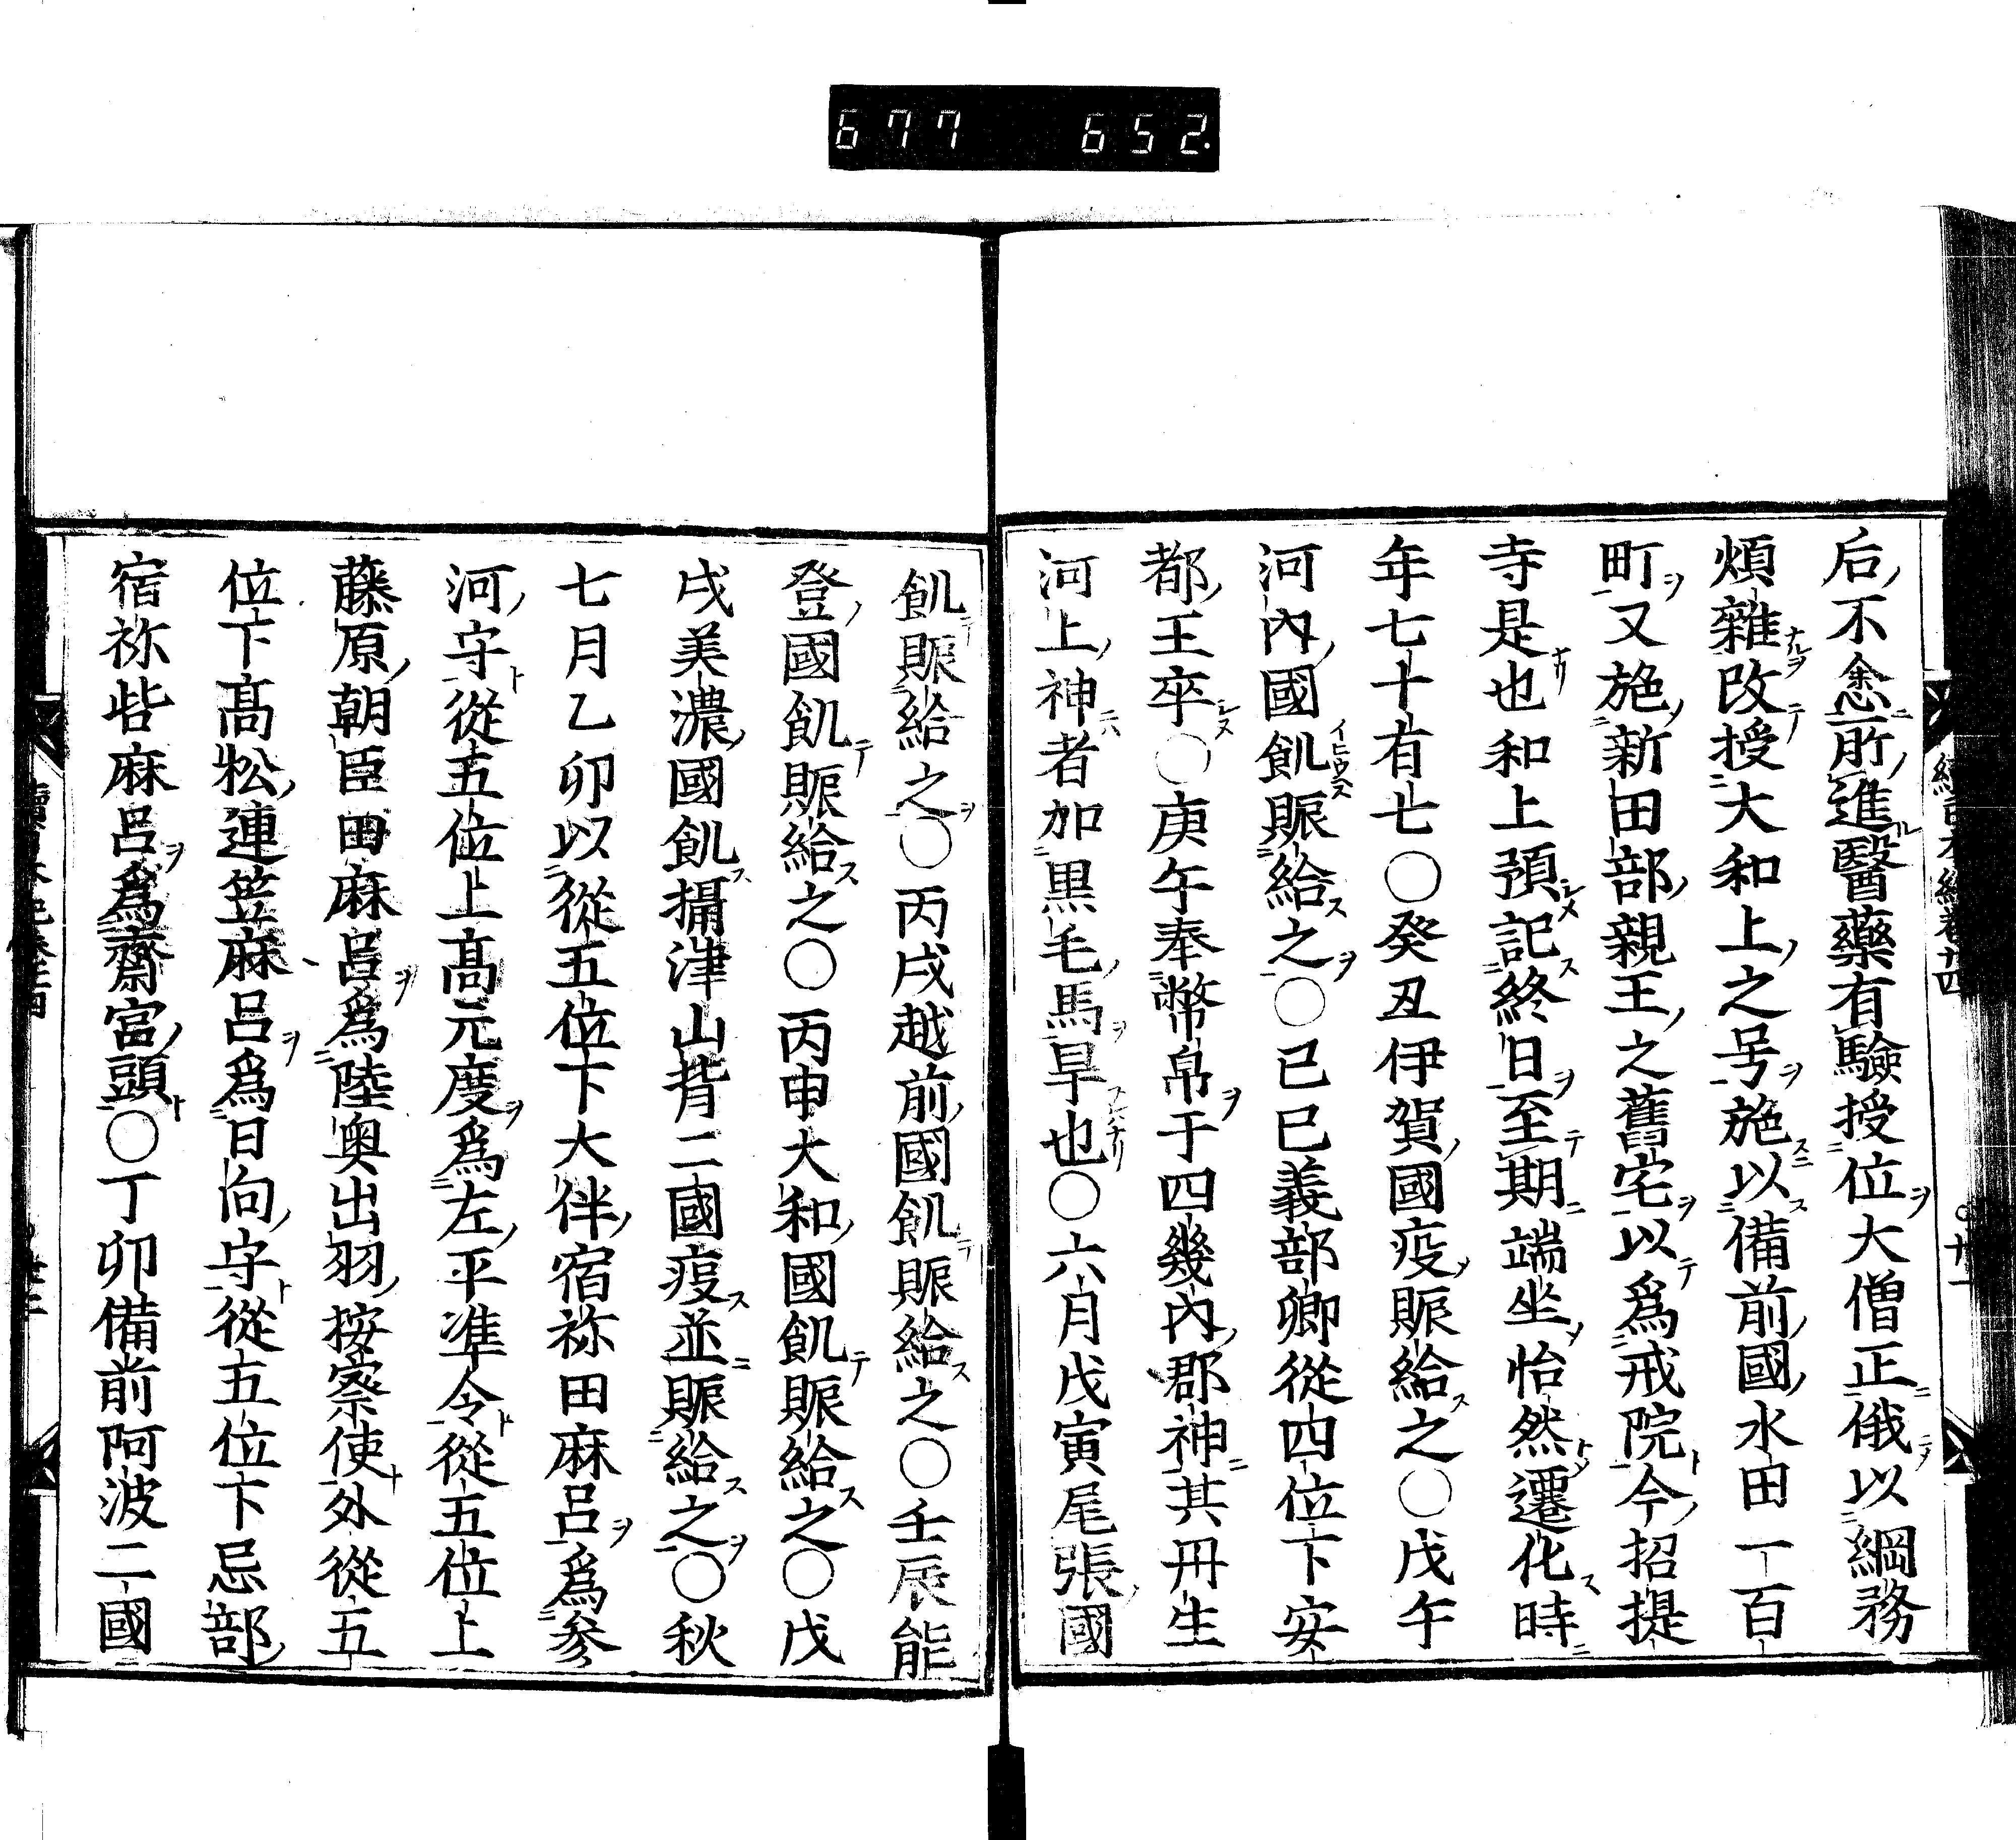 677 652.
后不悆所進醫藥有驗授位大僧正俄以綱務
煩雜改授大和上之号施以備前國水田一百
町又施新田部親王之舊宅以爲戒院今招提
寺是也和上預記終日至期端坐怡然遷化時
年七十有七〇癸丑伊賀國疫賑給之〇戊午
河內國飢賑給之〇己巳義部卿從四位下安
都王卒〇庚午奉幣帛于四幾內郡神其丹生
河上神者加黒毛馬旱也〇六月戊寅尾張國
飢賑給之〇丙戌越前國飢賑給之〇壬辰能
登國飢賑給之〇丙申大和國飢賑給之〇戊
戌美濃國飢攝津山背二國疫並賑給之〇秋
七月乙卯以從五位下大伴宿祢田麻呂爲參
河守從五位上髙元度爲左平準令從五位上
藤原朝臣田麻呂爲陸奧出羽按察使外從五
位下髙松連笠麻呂爲日向守從五位下忌部
宿祢呰麻呂爲齋宮頭〇丁卯備前阿波二國